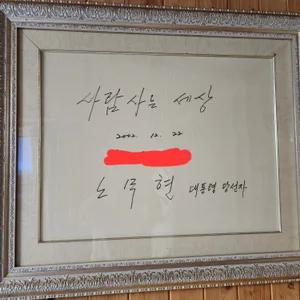 사람사는 세상
2002. 12. 22
노무현 대통령 당선자